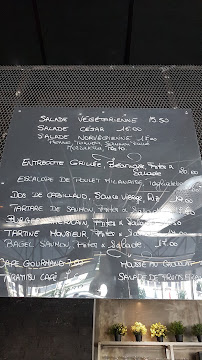 SALADE VÉGÉTARIENNE 15.50
SALADE CÉSAR 16.00
SALADE NORVÉGIENNE
ENTRECÔTE GRILLÉE, Béarnaise, Frites & Salade
ESCALOPE DE POULET MILANAISE, Tagliatelles
DOS DE CABILLAUD, Sauce Vierge, Riz
TARTARE DE SAUMON, Frites & Salade
BURGER, Frites & Salade
TARTINE MONSIEUR, Frites & Salade
BAGEL SAUMON, Frites & Salade
CAFÉ GOURMAND
MOUSSE CHOCOLAT
TIRAMISU CAFÉ
SALADE DE FRUITS FRAIS